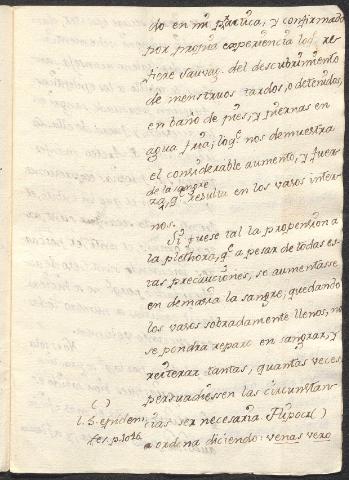 do en mi practica, y confirmado
por propria experiencia loq.e re-
fiere Sauvag. del descubrimiento
de menstruos tardos, o detenidos,
en baño de pies, y piernas en
agua fria; loq.e nos demuestra
el considerable aumento, y fuer-
de la sangre
za, q.e resulta en los vasos inter-
nos.
Si fuese tal la propension a
la plethora, q.e a pesar de todas es-
tas precauciones, se aumentasse
en demasia la sangre, quedando
los vasos sobradamente llenos, no
se pondrá reparo en sangrar, y
reiterar tantas, quantas veces
persuadiessen las circunstan-
cias ser necesaria. Hipocr()
a ordena diciendo: venas vero
()
l. 5. epidem